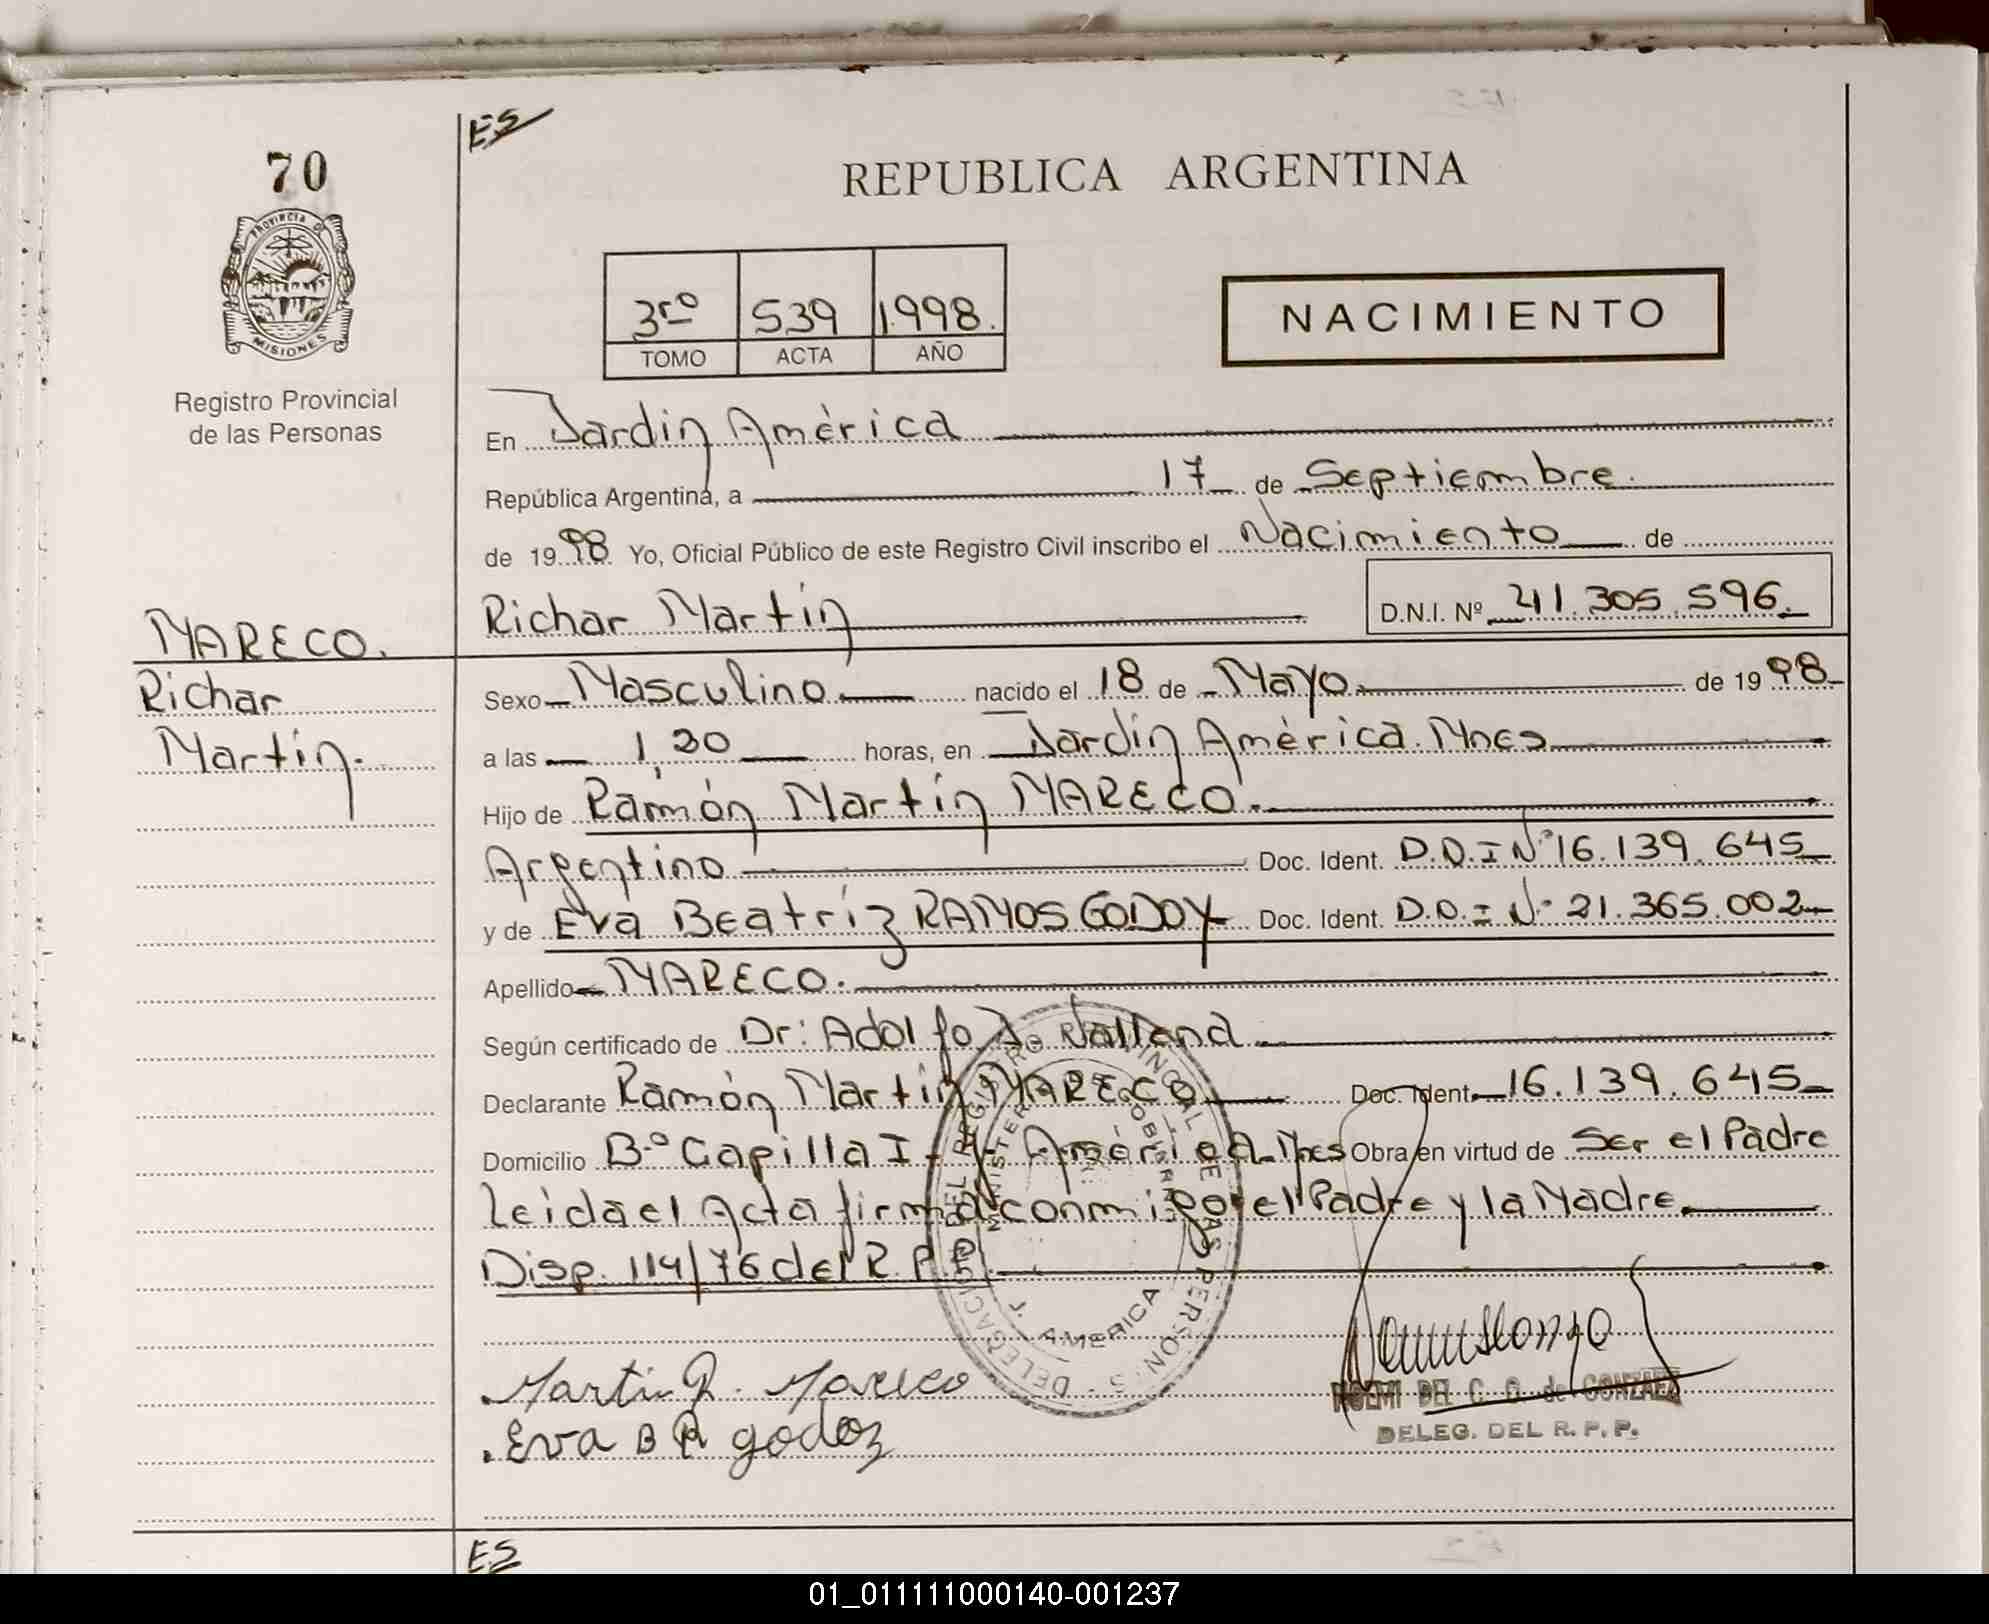 ES
70
REPUBLICA ARGENTINA
PROVINCIA DE
MISIONES
Registro Provincial
de las Personas
3ro 539 1.998.
TOMO ACTA AÑO
NACIMIENTO
En Jardín América
República Argentina, a 17 de Septiembre.
de 19 98 Yo, Oficial Público de este Registro Civil inscribo el Nacimiento de
Richar Martín D.N.I. Nº 41.305.596.
MARECO.
Richar
Martín.
Sexo Masculino nacido el 18 de Mayo de 19 98
a las 1,30 horas, en Jardín América. Mnes
Hijo de Ramón Martín MARECO.
Argentino Doc. Ident. D.N.I Nº 16.139.645
y de Eva Beatríz RAMOS GODOY Doc. Ident. D.N.I Nº 21.365.002
Apellido MARECO.
Según certificado de Dr: Adolfo
Declarante Ramón Martín MARECO Doc. Ident. 16.139.645
Domicilio B.º Capilla I - J. América. Mnes Obra en virtud de Ser el Padre
Leida el Acta firma conmigo el Padre y la Madre.
Disp. 114/76 del R.P.P.
DELEGACION DEL REGISTRO PROVINCIAL DE LAS PERSONAS
J. AMERICA
Martin R. Mareco
Eva B R godoz
NOEMI DEL C. O. de GONZALEZ
DELEG. DEL R. P. P.
ES
01_011111000140-001237